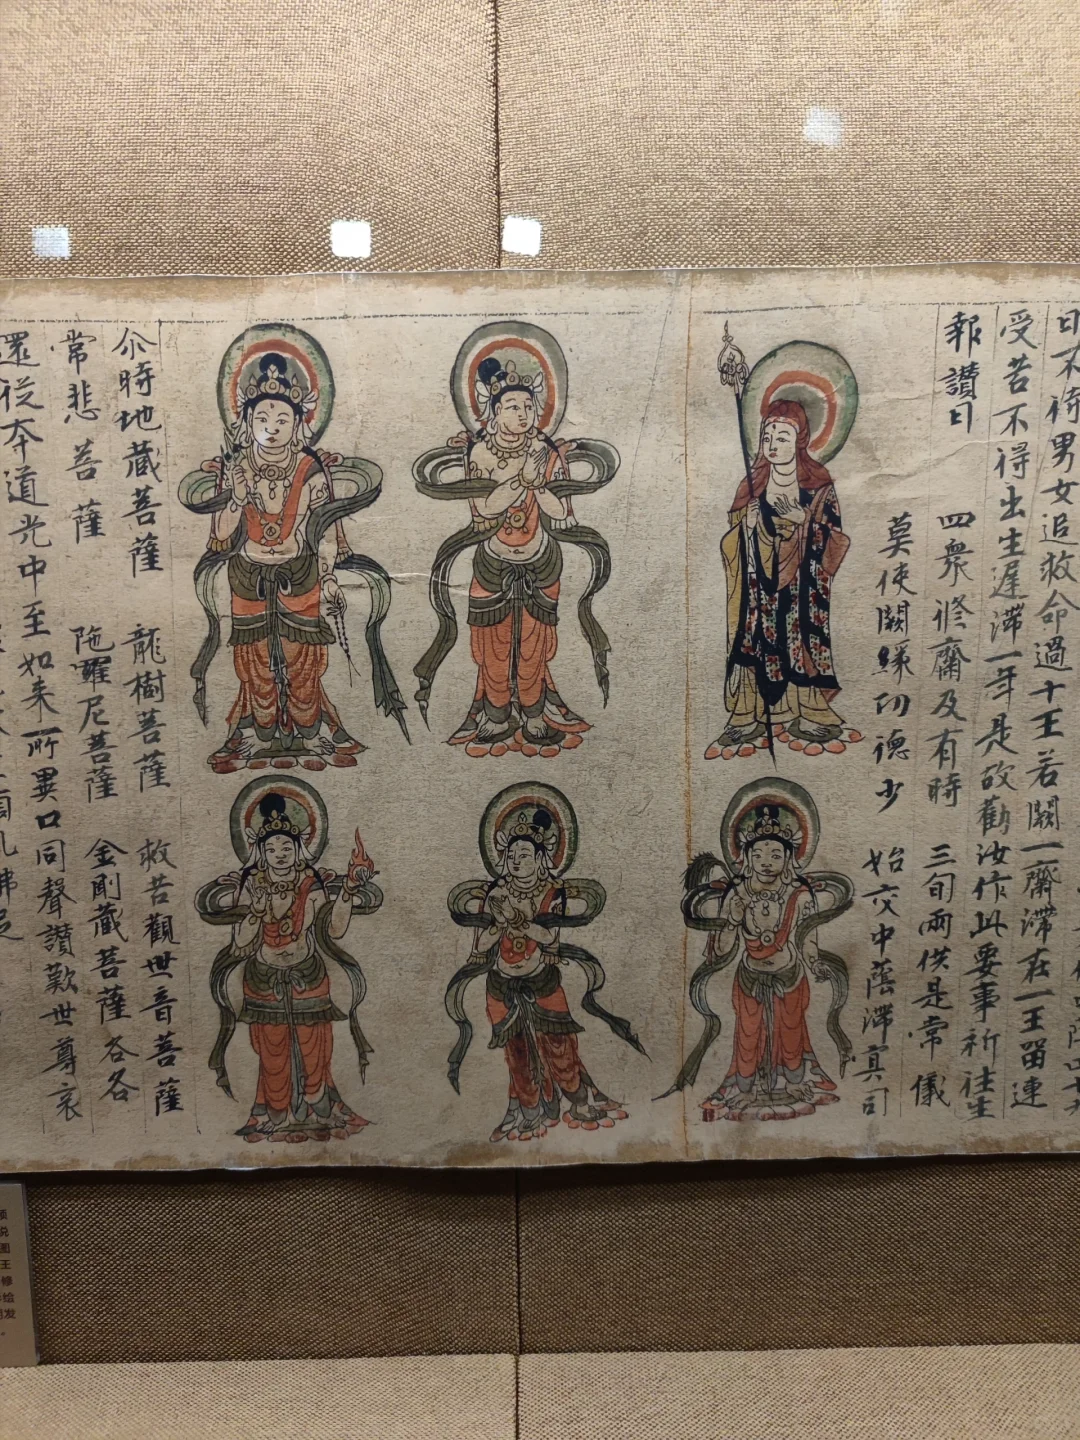 日不待男女追救命過十王若闕一齋滯在一王留連
受苦不得出生遲滯一年是故勸汝作此要事祈往生
報讚曰
四衆修齋及有時 三旬兩供是常儀
莫使闕緣功德少 始交中蔭滯冥司
尒時地藏菩薩 龍樹菩薩 救苦觀世音菩薩
常悲菩薩 陁羅尼菩薩 金剛藏菩薩各各
還從本道光中至如来所異口同聲讚歎世尊哀
说
图
王
修
绘
发